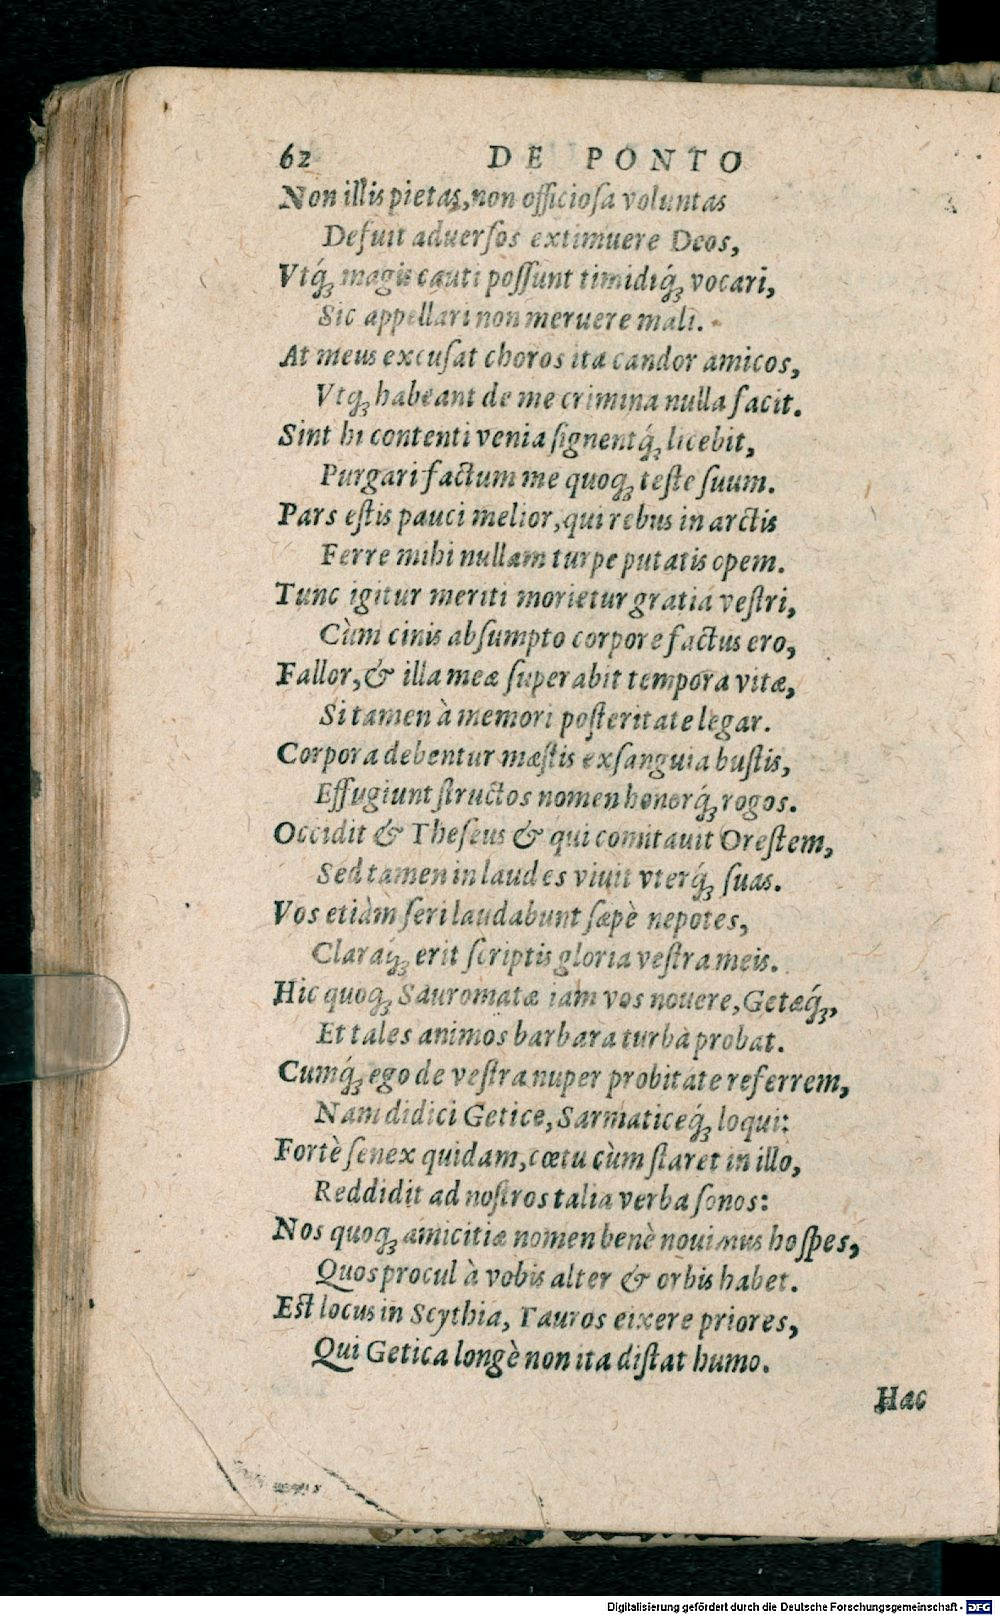 62 DE PONTO
Non illis pietas, non officiosa voluntas
Defuit aduersos extimuere Deos,
Vtq́ꝫ magis cauti possunt timidiq́ꝫ vocari,
Sic appellari non meruere mali.
At meus excusat choros ita candor amicos,
Vtqꝫ habeant de me crimina nulla facit.
Sint hi contenti venia signentq́ꝫ licebit,
Purgari factum me quoqꝫ teste suum.
Pars estis pauci melior, qui rebus in arctis
Ferre mihi nullam turpe putatis opem.
Tunc igitur meriti morietur gratia vestri,
Cùm cinis absumpto corpore factus ero,
Fallor, & illa meæ superabit tempora vitæ,
Si tamen à memori posteritate legar.
Corpora debentur mæstis exsanguia bustis,
Effugiunt structos nomen honorq́ꝫ rogos.
Occidit & Theseus & qui comitauit Orestem,
Sed tamen in laudes viuit vterq́ꝫ suas.
Vos etiàm seri laudabunt sæpè nepotes,
Claraq́ꝫ erit scriptis gloria vestra meis.
Hic quoqꝫ Sauromatæ iam vos nouere, Getæq́ꝫ,
Et tales animos barbara turba probat.
Cumq́ꝫ ego de vestra nuper probitate referrem,
Nam didici Getice, Sarmaticeq́ꝫ loqui:
Fortè senex quidam, cœtu cùm staret in illo,
Reddidit ad nostros talia verba sonos:
Nos quoqꝫ amicitiæ nomen benè nouimus hospes,
Quos procul à vobis alter & orbis habet.
Est locus in Scythia, Tauros eixere priores,
Qui Getica longè non ita distat humo.
Hac
Digitalisierung gefördert durch die Deutsche Forschungsgemeinschaft - DFG